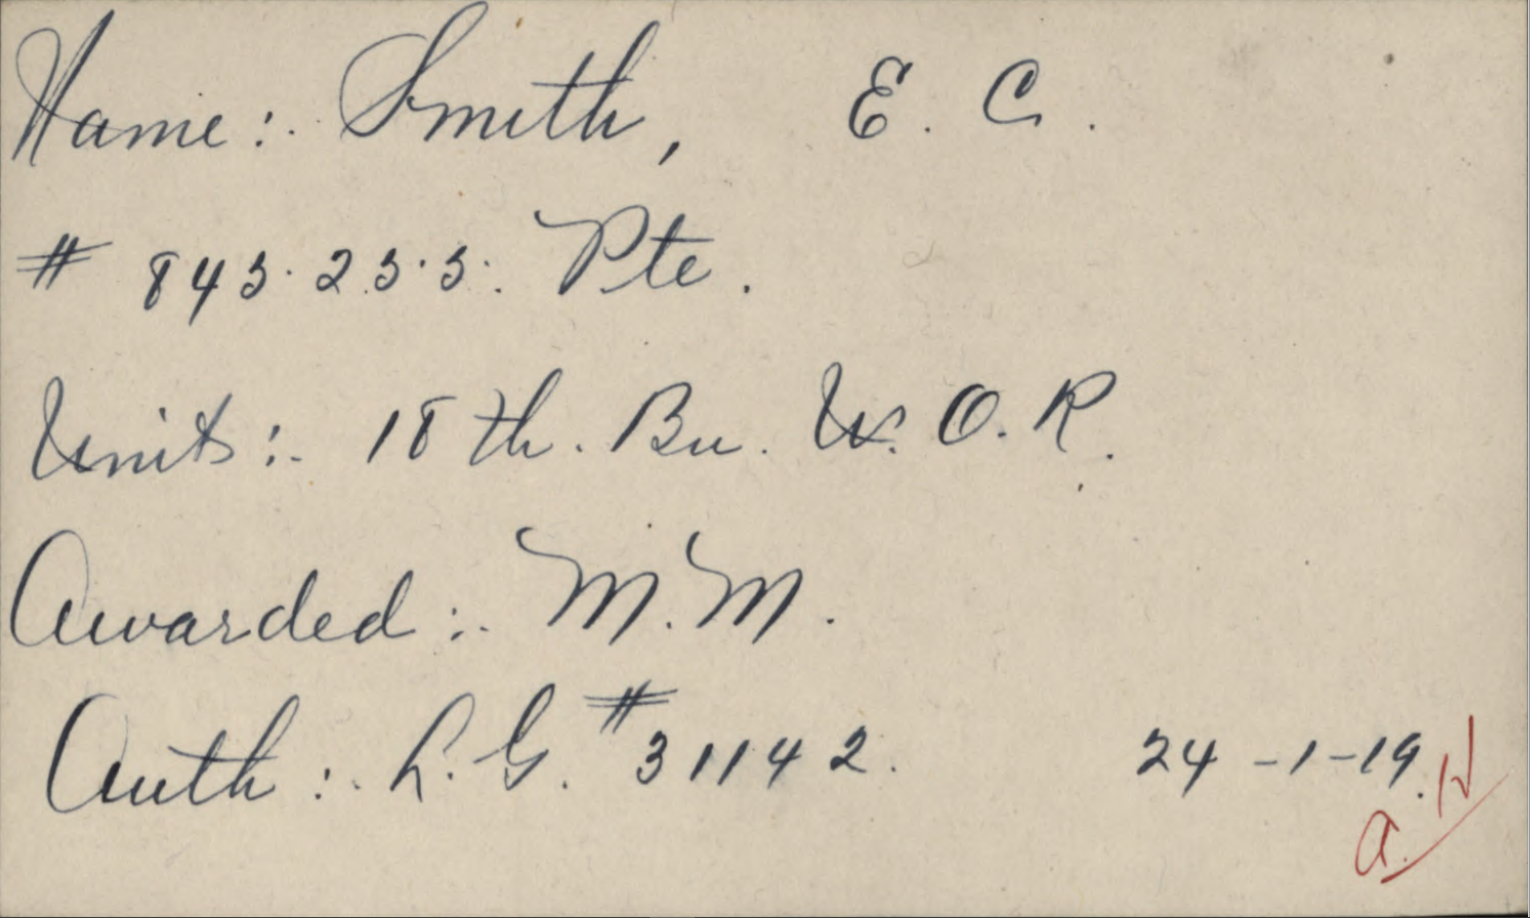 Name:. Smith, E. C.
# 843·2.3·3·. Pte.
Units:. 18 th. Bn. W. O. R.
Awarded:. M. M.
Auth:. L. G. # 31142. 24 -1-19.